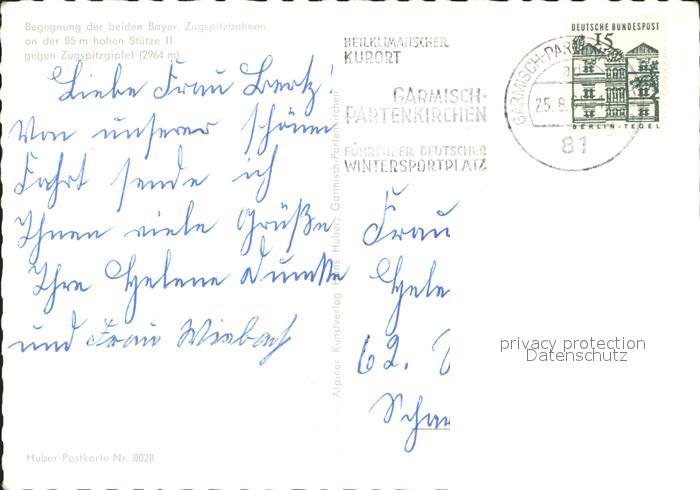 Begegnung der beiden Bayer. Zugspitzbahnen
an der 85 m hohen Stütze II
gegen Zugspitzgipfel (2964 m)
Liebe Frau Bertz!
Von unserer schönen
Fahrt sende ich
Ihnen viele Grüße
Ihre Helene
und Frau
Huber-Postkarte Nr. 8028
Alpiner Kunstverlag Hans Huber, Garmisch-Partenkirchen
HEILKLIMATISCHER
KURORT
GARMISCH-
PARTENKIRCHEN
FÜHRENDER DEUTSCHER
WINTERSPORTPLATZ
GARMISCH-PARTENKIRCHEN
25.8.
81
DEUTSCHE BUNDESPOST
15
BERLIN-TEGEL
Frau
Hele
62.
Schar
privacy protection
Datenschutz